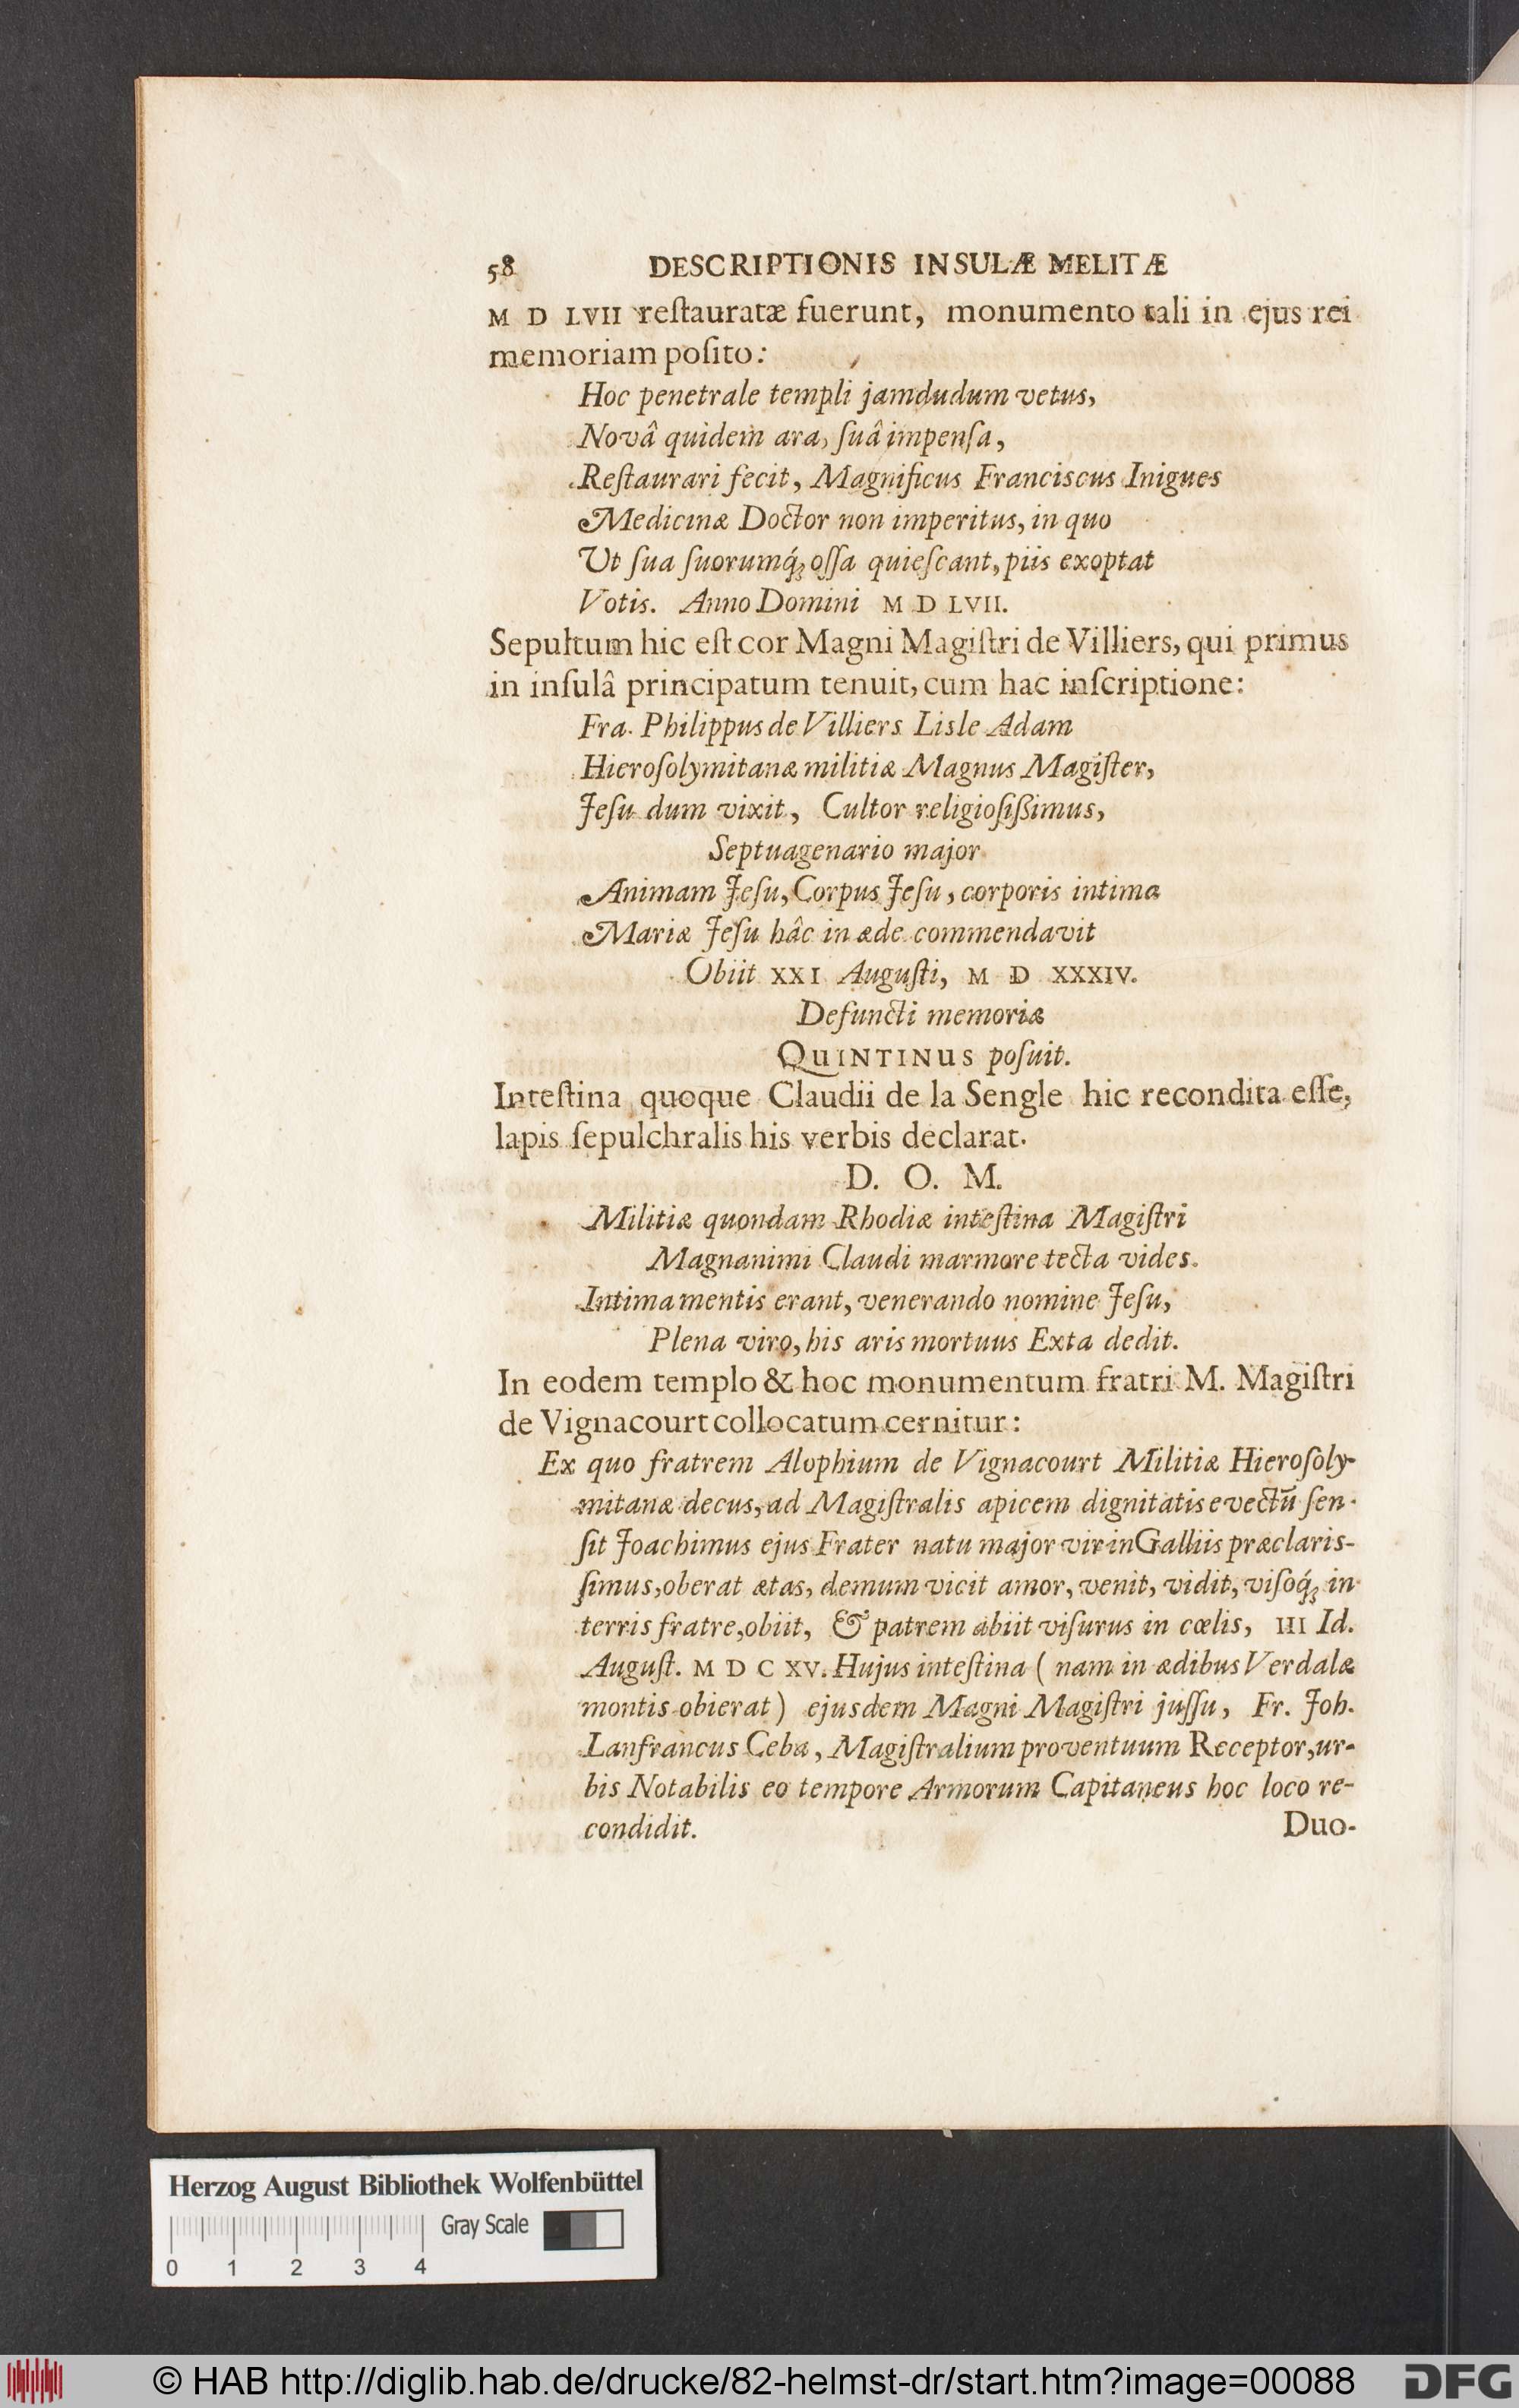 58 DESCRIPTIONIS INSULÆ MELITÆ
M D LVII reſtauratæ fuerunt, monumento tali in ejus rei
memoriam poſito:
Hoc penetrale templi jamdudum vetus,
Novâ quidem ara, ſuâ impenſa,
Reſtaurari fecit, Magnificus Franciscus Inigues
Medicinæ Doctor non imperitus, in quo
Ut ſua ſuorumq́ꝫ oſſa quieſcant, piis exoptat
Votis. Anno Domini M D LVII.
Sepultum hic eſt cor Magni Magiſtri de Villiers, qui primus
in inſulâ principatum tenuit, cum hac inſcriptione:
Fra. Philippus de Villiers Lisle Adam
Hieroſolymitanæ militiæ Magnus Magiſter,
Jeſu dum vixit, Cultor religioſiſſimus,
Septuagenario major
Animam Jeſu, Corpus Jeſu, corporis intima
Mariæ Jeſu hâc in æde commendavit
Obiit XXI Auguſti, M D XXXIV.
Defuncti memoriæ
QUINTINUS poſuit.
Inteſtina quoque Claudii de la Sengle hic recondita eſſe,
lapis ſepulchralis his verbis declarat.
D. O. M.
Militiæ quondam Rhodiæ inteſtina Magiſtri
Magnanimi Claudi marmore tecta vides.
Intima mentis erant, venerando nomine Jeſu,
Plena viro, his aris mortuus Exta dedit.
In eodem templo & hoc monumentum fratri M. Magiſtri
de Vignacourt collocatum cernitur:
Ex quo fratrem Alophium de Vignacourt Militiæ Hieroſoly-
mitanæ decus, ad Magiſtralis apicem dignitatis evectū ſen-
ſit Joachimus ejus Frater natu major vir in Galliis præclaris-
ſimus, oberat ætas, demum vicit amor, venit, vidit, viſoq́ꝫ in
terris fratre, obiit, & patrem abiit viſurus in cœlis, III Id.
Auguſt. M D C XV. Hujus inteſtina ( nam in ædibus Verdalæ
montis obierat ) ejusdem Magni Magiſtri juſſu, Fr. Joh.
Lanfrancus Ceba, Magiſtralium proventuum Receptor, ur-
bis Notabilis eo tempore Armorum Capitaneus hoc loco re-
condidit. Duo-
Herzog August Bibliothek Wolfenbüttel
Gray Scale
0 1 2 3 4
© HAB http://diglib.hab.de/drucke/82-helmst-dr/start.htm?image=00088 DFG